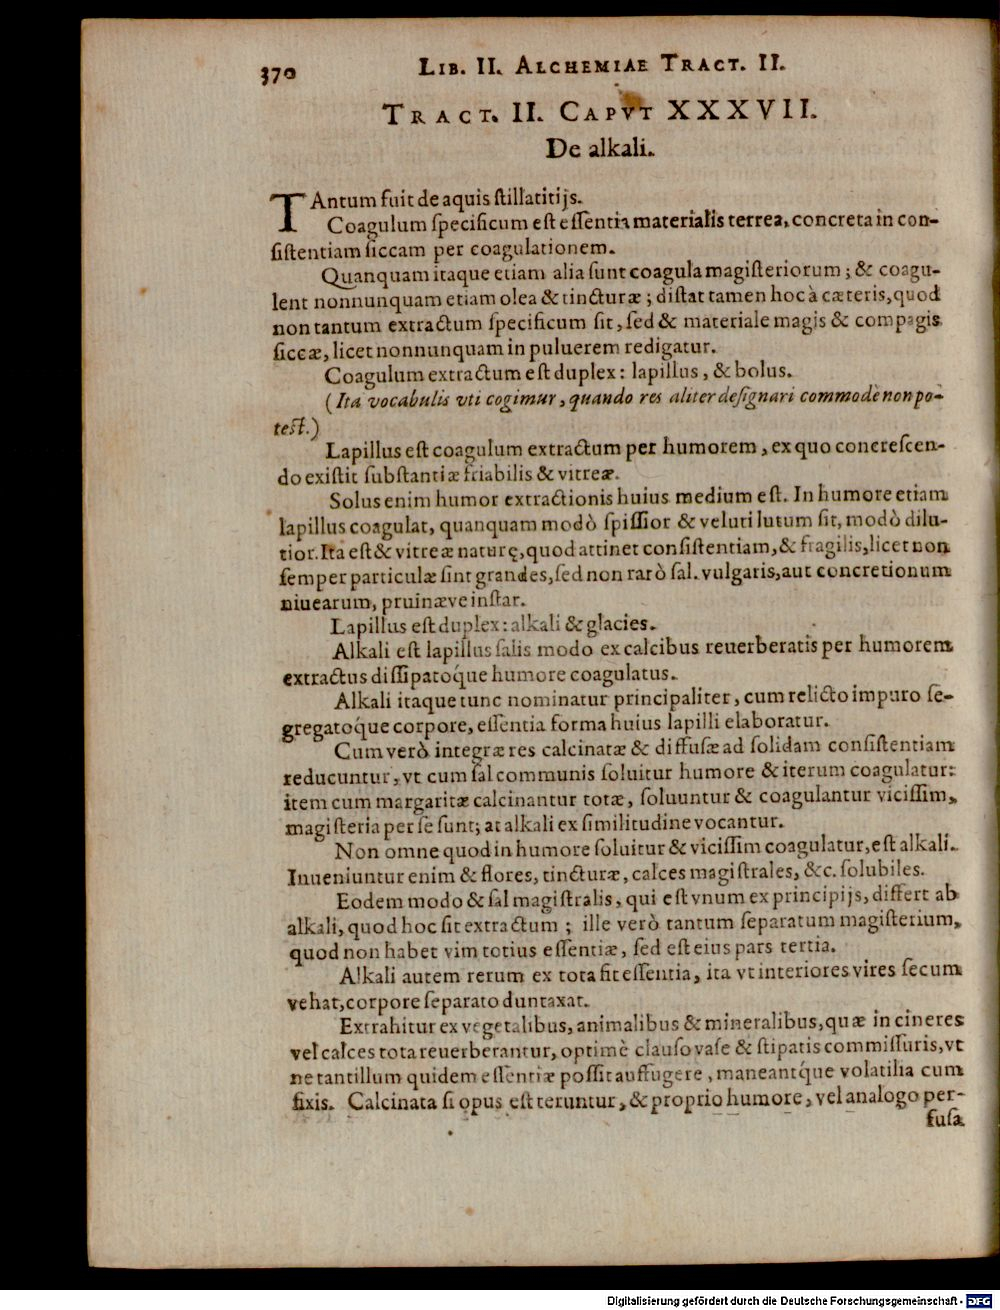 370 LIB. II. ALCHEMIAE TRACT. II.
TRACT. II. CAPVT XXXVII.
De alkali.
TAntum fuit de aquis ſtillatitijs.
Coagulum ſpecificum eſt eſſentia materialis terrea, concreta in con-
ſiſtentiam ſiccam per coagulationem.
Quanquam itaque etiam alia ſunt coagula magiſteriorum; & coagu-
lent nonnunquam etiam olea & tincturæ; diſtat tamen hoc à cæteris, quod
non tantum extractum ſpecificum ſit, ſed & materiale magis & compagis
ſiccæ, licet nonnunquam in puluerem redigatur.
Coagulum extractum eſt duplex: lapillus, & bolus.
(Ita vocabulis vti cogimur, quando res aliter deſignari commodè non po-
teſt.)
Lapillus eſt coagulum extractum per humorem, ex quo concreſcen-
do exiſtit ſubſtantiæ friabilis & vitreæ.
Solus enim humor extractionis huius medium eſt. In humore etiam
lapillus coagulat, quanquam modò ſpiſſior & veluti lutum ſit, modò dilu-
tior. Ita eſt & vitreæ naturę, quod attinet conſiſtentiam, & fragilis, licet non
ſemper particulæ ſint grandes, ſed non rarò ſal. vulgaris, aut concretionum
niuearum, pruinæve inſtar.
Lapillus eſt duplex: alkali & glacies.
Alkali eſt lapillus ſalis modo ex calcibus reuerberatis per humorem
extractus diſſipatóque humore coagulatus.
Alkali itaque tunc nominatur principaliter, cum relicto impuro ſe-
gregatóque corpore, eſſentia forma huius lapilli elaboratur.
Cum verò integræ res calcinatæ & diffuſæ ad ſolidam conſiſtentiam
reducuntur, vt cum ſal communis ſoluitur humore & iterum coagulatur:
item cum margaritæ calcinantur totæ, ſoluuntur & coagulantur viciſſim,
magiſteria per ſe ſunt; at alkali ex ſimilitudine vocantur.
Non omne quod in humore ſoluitur & viciſſim coagulatur, eſt alkali.
Inueniuntur enim & flores, tincturæ, calces magiſtrales, &c. ſolubiles.
Eodem modo & ſal magiſtralis, qui eſt vnum ex principijs, differt ab
alkali, quod hoc ſit extractum; ille verò tantum ſeparatum magiſterium,
quod non habet vim totius eſſentiæ, ſed eſt eius pars tertia.
Alkali autem rerum ex tota fit eſſentia, ita vt interiores vires ſecum
vehat, corpore ſeparato duntaxat.
Extrahitur ex vegetalibus, animalibus & mineralibus, quæ in cineres
vel calces tota reuerberantur, optimè clauſo vaſe & ſtipatis commiſſuris, vt
ne tantillum quidem eſſentiæ poſſit auffugere, maneantq́ue volatilia cum
fixis. Calcinata ſi opus eſt teruntur, & proprio humore, vel analogo per-
fuſa
Digitalisierung gefördert durch die Deutsche Forschungsgemeinschaft - DFG